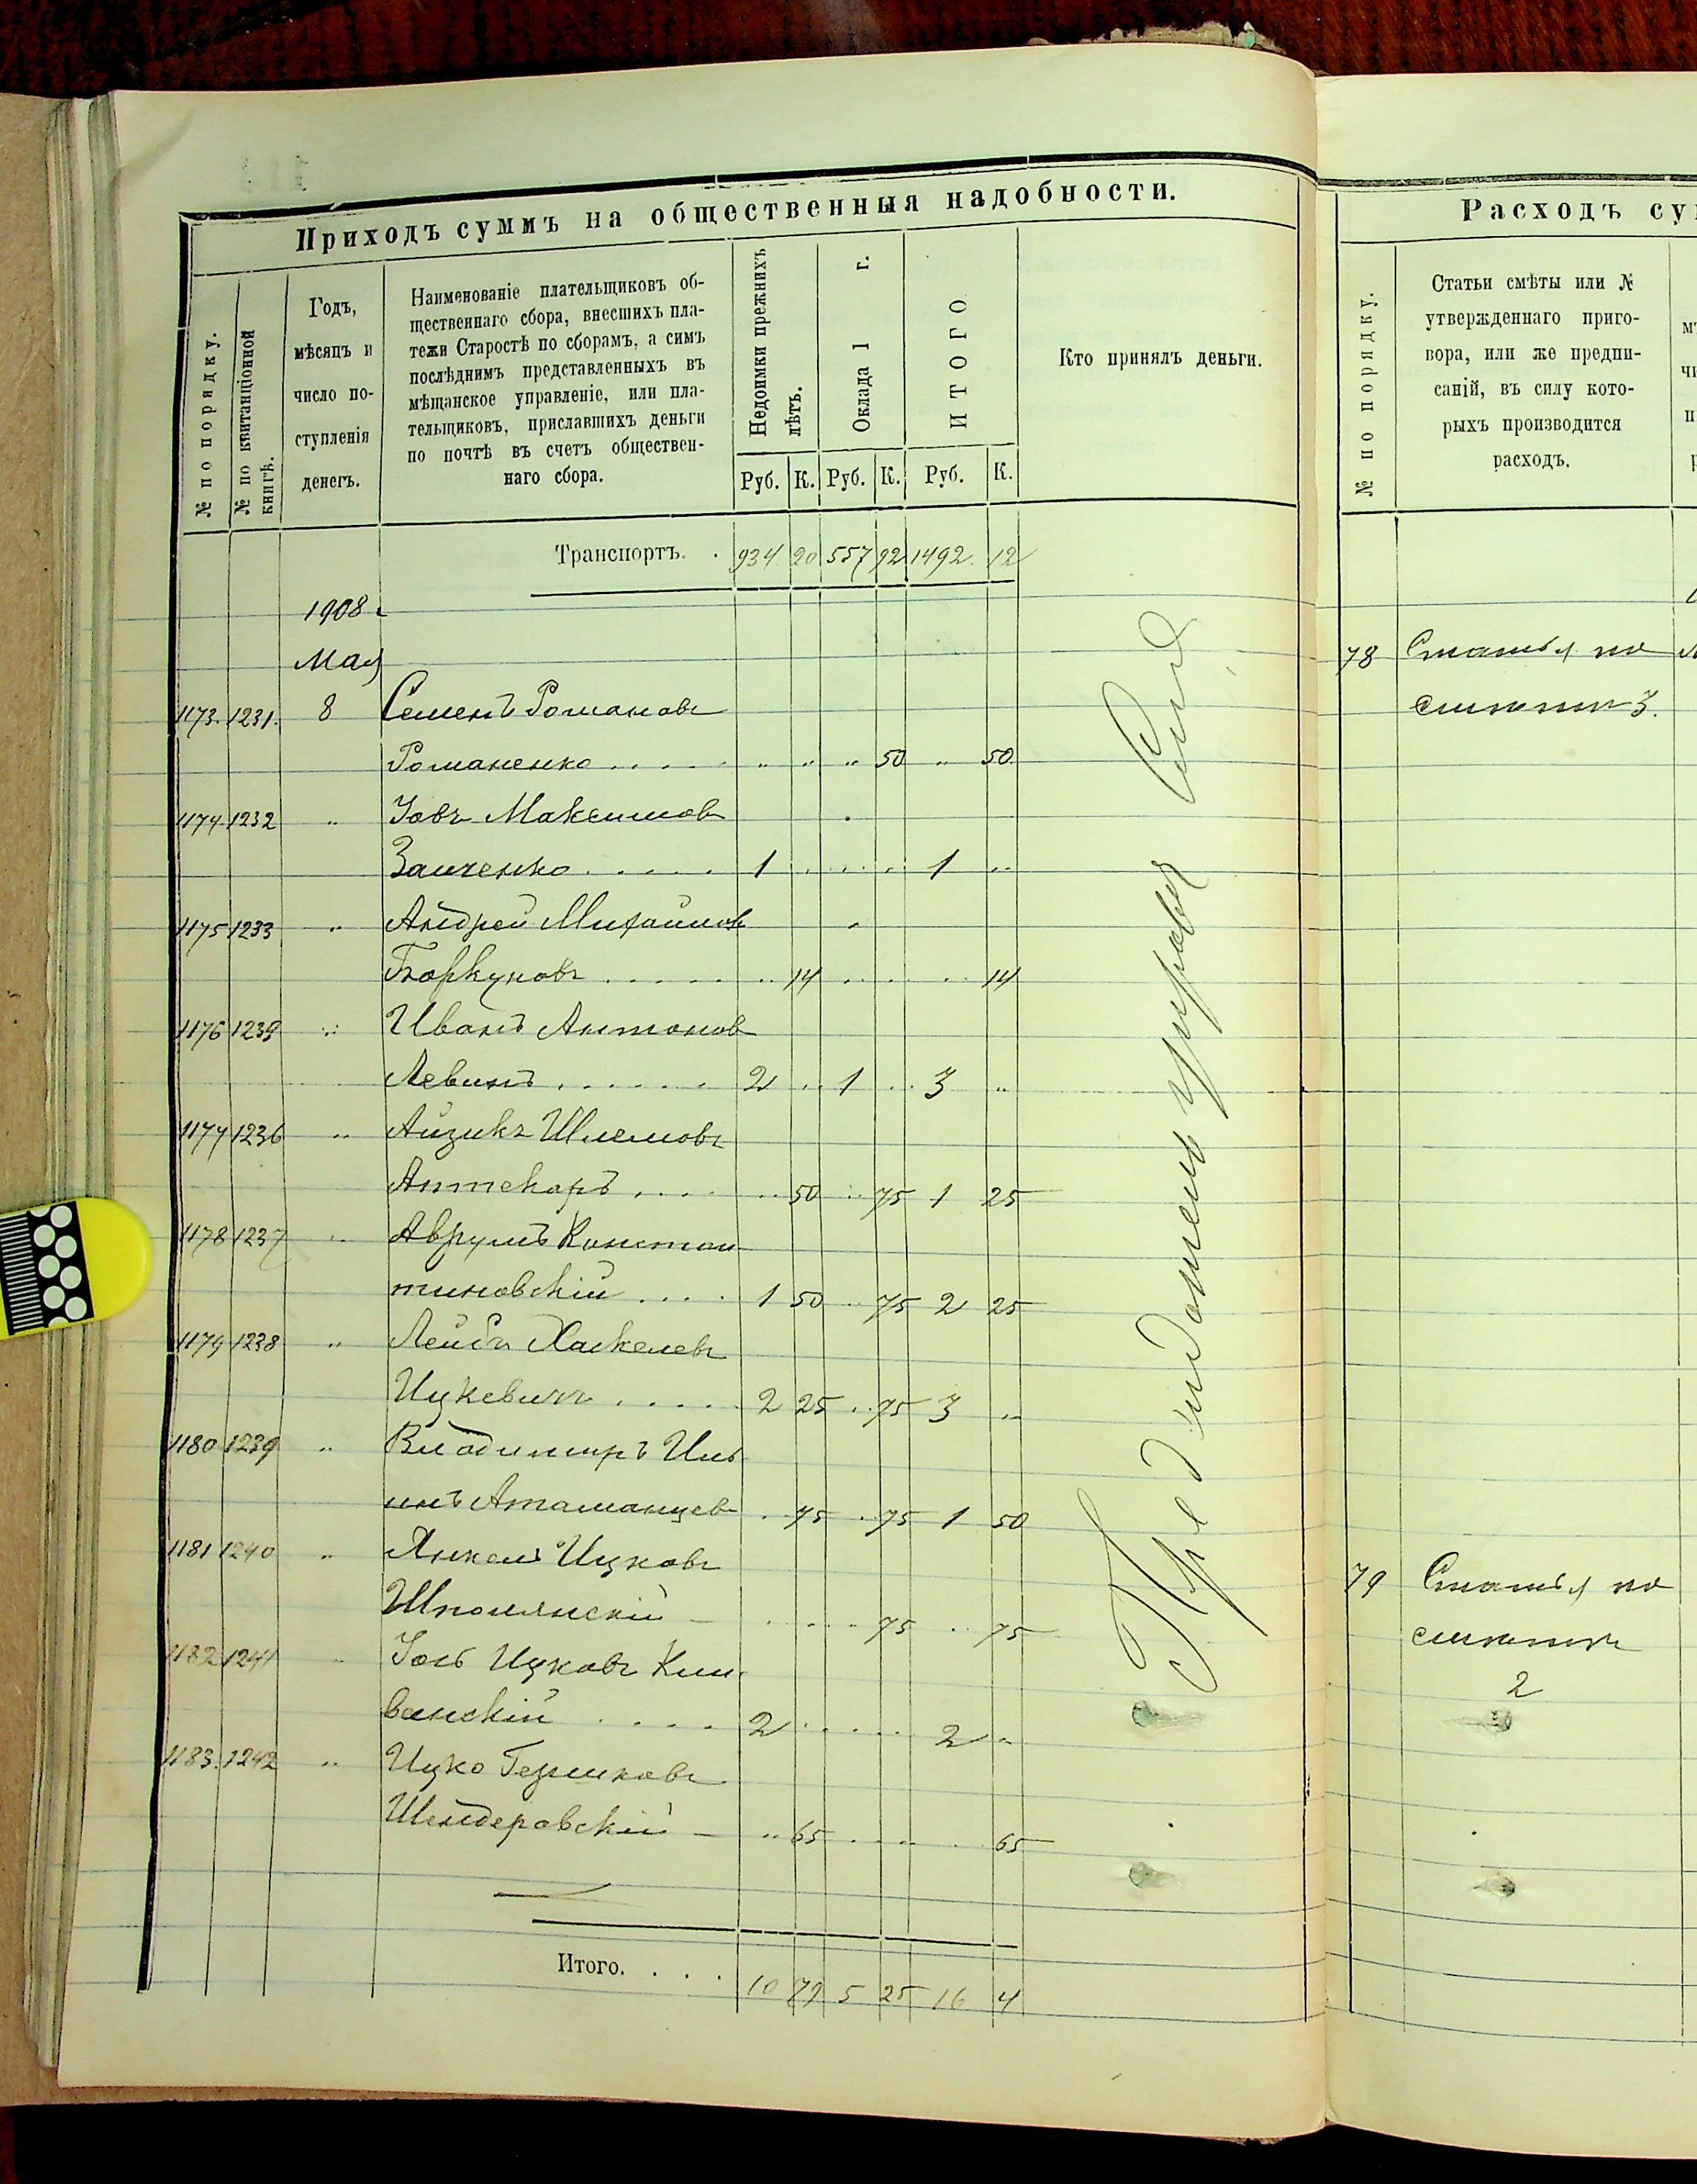 Приходъ суммъ на общественныя надобности.
№ по порядку.
№ по квитанціонной книгѣ.
Годъ,
мѣсяцъ и
число по-
ступленія
денегъ.
Наименованіе плательщиковъ об-
щественнаго сбора, внесшихъ пла-
тежи Старостѣ по сборамъ, а симъ
послѣднимъ представленныхъ въ
мѣщанское управленіе, или пла-
тельщиковъ, приславшихъ деньги
по почтѣ въ счетъ обществен-
наго сбора.
Недоимки прежнихъ
лѣтъ.
Оклада 1 г.
ИТОГО
Руб. К. Руб. К. Руб. К.
Кто принялъ деньги.
Транспортъ. . 934 20 557 92 1492 12
1908 г
Мая
1173. 1231. 8 Семенъ Романовъ
Романенко . . . . . " " " 50 " 50
1174 1232 " Іовъ Максимов
Заиченко . . . . . 1 . . . . 1 "
1175 1233 " Андрей Михайлов
Боркуновъ . . . . . " 14 . . . 14
1176 1239 " Иванъ Антонов
Левинъ . . . . . . 2 " 1 " 3 "
1177 1236 " Айзикъ Шлемовъ
Аптекаръ . . . . " 50 " 75 1 25
1178 1237 " Аврумъ Констан
тиновскій . . . . 1 50 " 75 2 25
1179 1238 " Лейбъ Хаскелевъ
Ицкевичъ . . . . . 2 25 " 75 3 "
1180 1239 " Владиміръ Иль
инъ Атаманцев . 75 . 75 1 50
1181 1240 " Янкель Ицковъ
Шполянскій — . . . 75 " 75
1182 1241 " Іось Ицковъ
ванскій . . . . 2 . . . . 2 "
1183. 1242 " Ицко Гершковъ
Шендеровскій — " 65 . . . 65
Итого. . . . 10 79 5 25 16 4
Расходъ су
№ по порядку.
Статьи смѣты или №
утвержденнаго приго-
вора, или же предпи-
саній, въ силу кото-
рыхъ производится
расходъ.
78 Статья по
смѣтѣ 3.
79 Статья по
смѣтѣ
2